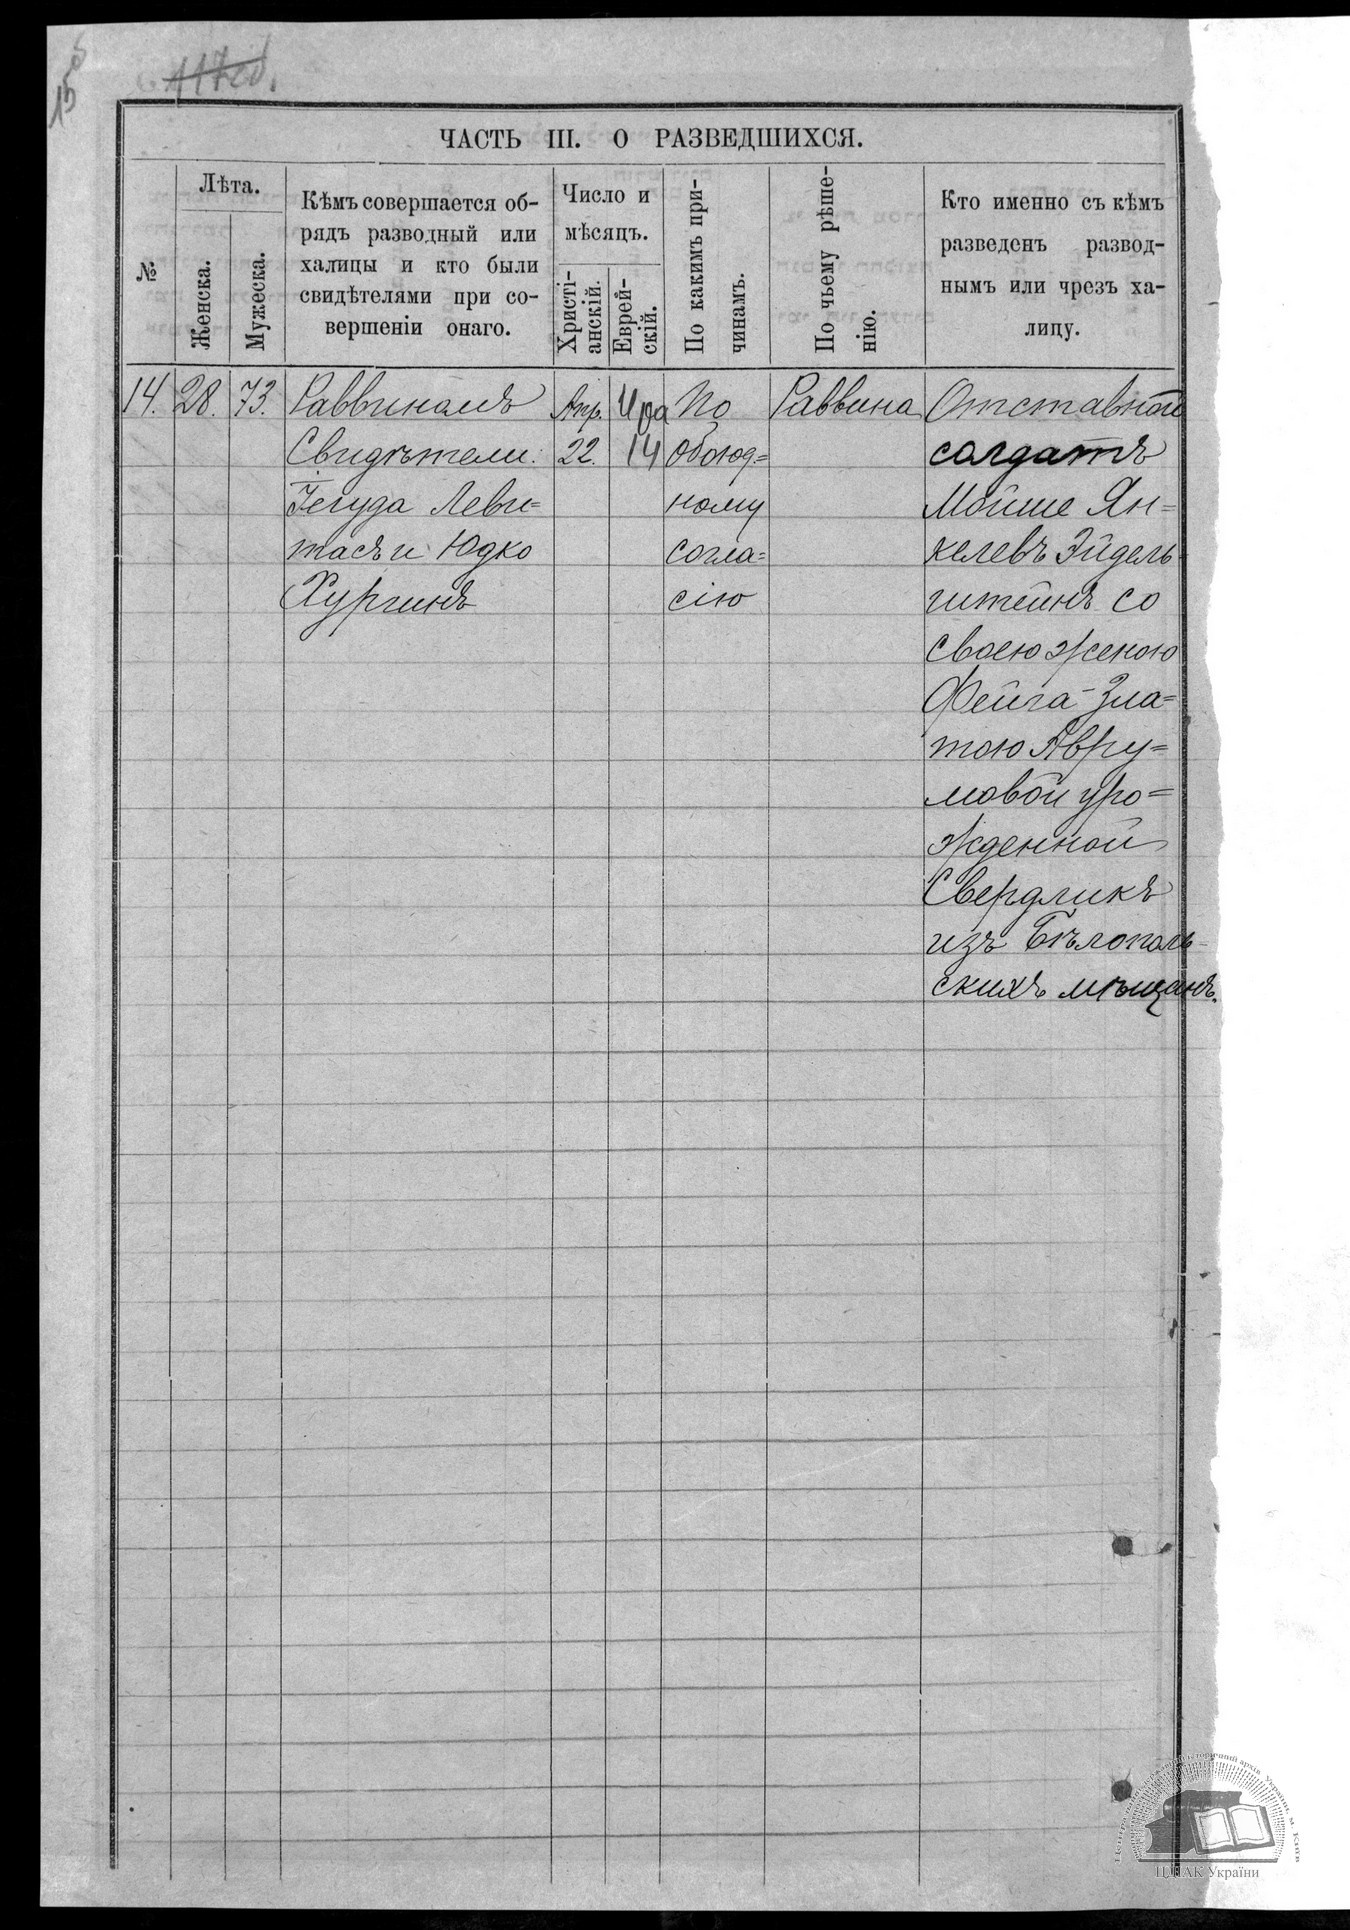 117об.
15
ЧАСТЬ III. О РАЗВЕДШИХСЯ.
№
Лѣта.
Женска.
Мужеска.
Кѣмъ совершается об-
рядъ разводный или
халицы и кто были
свидѣтелями при со-
вершеніи онаго.
Число и
мѣсяцъ.
Христі-
анскій.
Еврей-
скій.
По какимъ при-
чинамъ.
По чьему рѣше-
нію.
Кто именно съ кѣмъ
разведенъ развод-
нымъ или чрезъ ха-
лицу.
14.
28.
73.
Раввиномъ
Свидѣтели:
Іегуда Леви=
тасъ и Юдко
Хургинъ
Апр.
22.
Ира
14
По
обоюд=
ному
согла=
сію
Раввина
Отставной
солдатъ
Мойше Ян=
келевъ Эйдель=
штейнъ со
своею женою
Фейга-Зла=
тою Аврy=
мовой уро=
жденной
Свердликъ
изъ Бѣлополь-
скихъ мѣщанъ.
ЦДІАК України